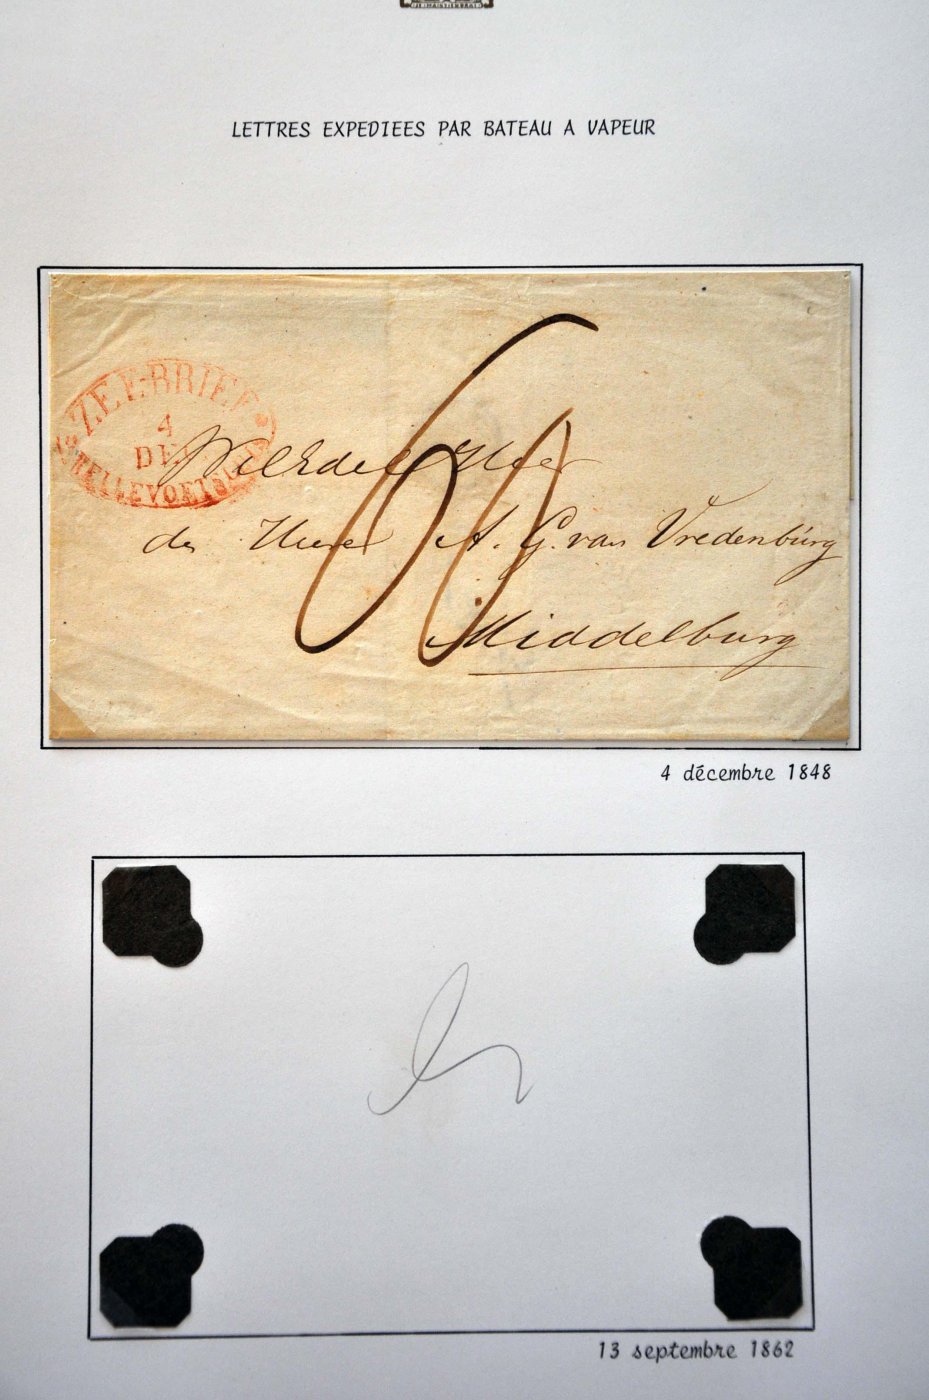 LETTRES EXPEDIEES PAR BATEAU A VAPEUR
ZEE-BRIEF
4
DEC
HELLEVOETSLUIS
60
WelEdele Heer
den Heere A. G. van Vredenburg
Middelburg
4 décembre 1848
13 septembre 1862